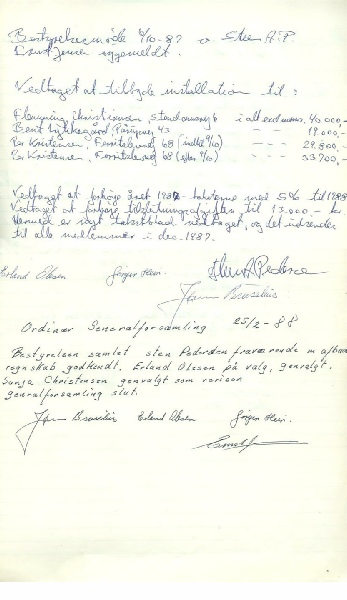 Bestyrelsesmøde 6/10-87 v. Steen A.P.
Ernst Jensen sygemeldt.
Vedtaget at tilbyde installation til:
Flemming Christiansen, i alt exl. moms. 40.000,-
Bent Lykkegaard 43 - - - 19.000,-
Per Kristensen, Femtelvej 68 (inden 9/10) - - - 29.800,-
Per Kristensen, Femtelvej 68 (efter 9/10) - - - 33.700,-
Vedtaget at forhøje året 1987 taksterne med 5% til 1988
Vedtaget at forhøje tilslutningsafgiften til 13.000,- kr
Hermed er nyt takstblad vedtaget, og det udsendes
til alle medlemmer i dec. 1987.
Erland Olesen Jørgen Hein. Steen A Pedersen
Jørn Broszkis
Ordinær Generalforsamling 25/2-88
Bestyrelsen samlet sten Pedersen fraværende m afbud
regnskab godkendt. Erland Olesen på valg, genvalgt.
Sonja Christensen genvalgt som revisor
generalforsamling slut.
Jørn Broszkis Erland Olesen Jørgen Hein.